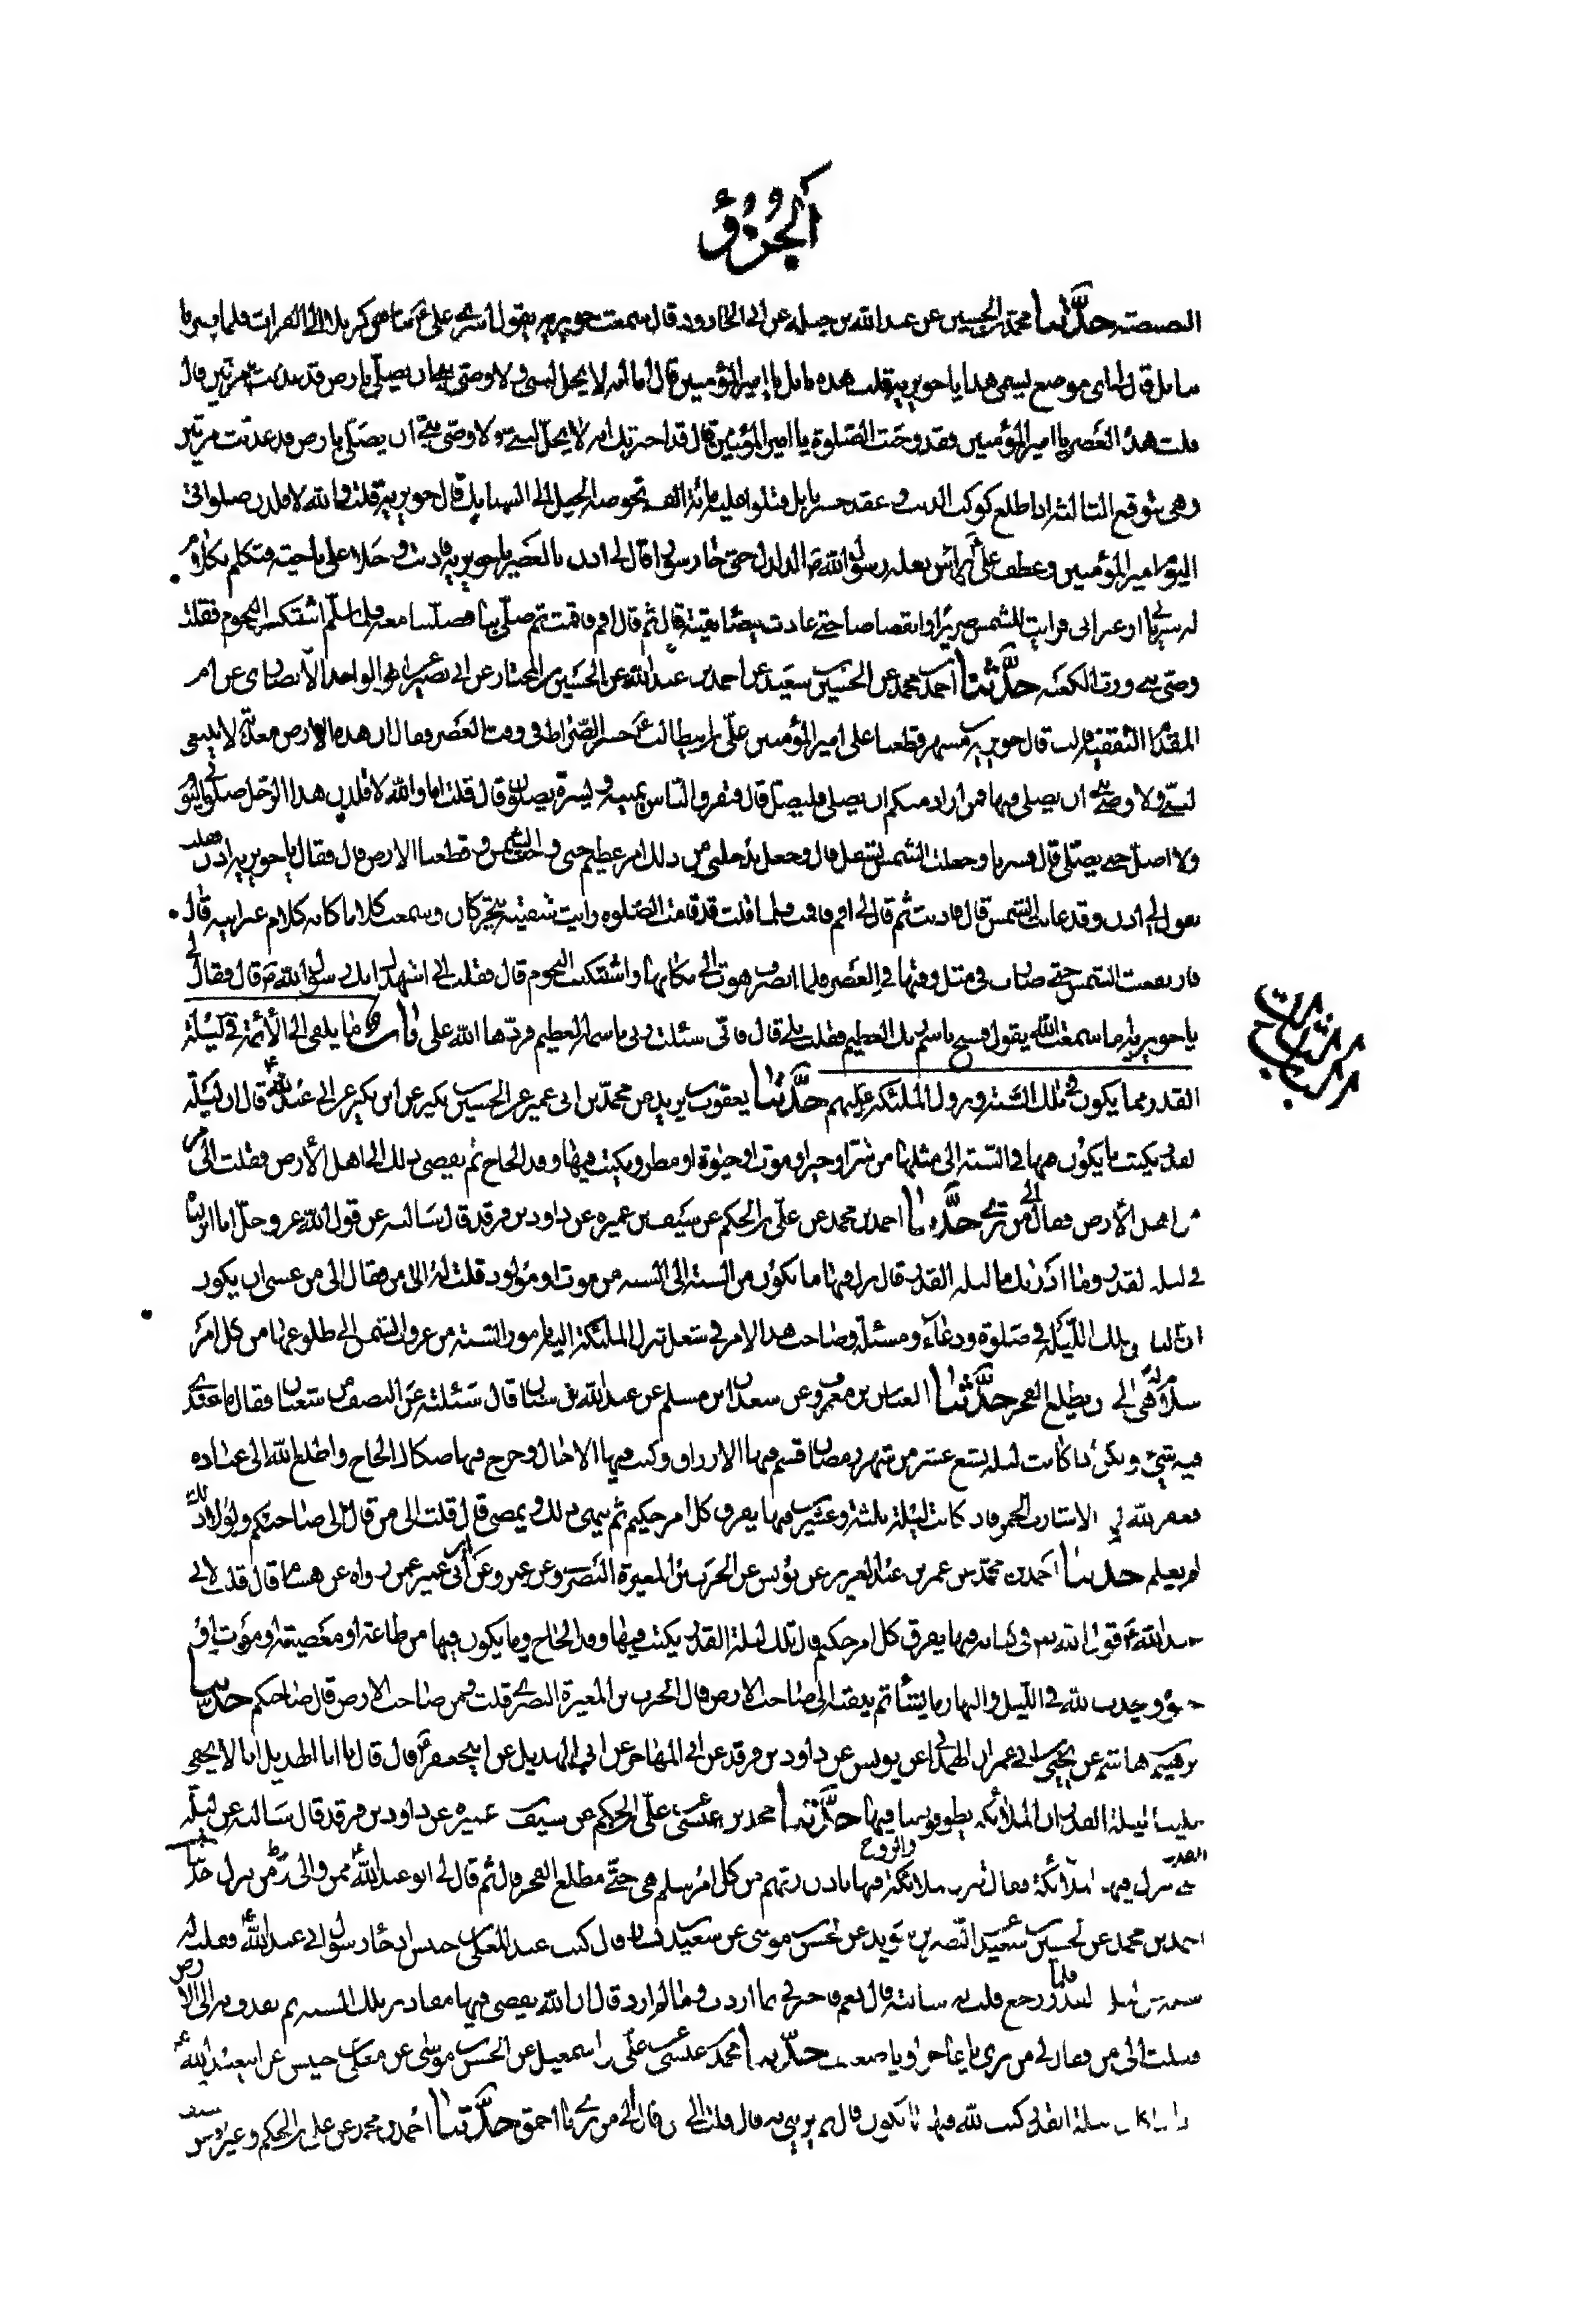 الجزؤ
حدثنا محمد بن الحسين عن عبد الله بن جبله عن ابى الجارود قال سمعت جويرية يقول اسرى علىّ ع بنا من كربلا الى الفرات فلما صرنا
ببابل قال لى اى موضع يسمى هذا يا جويرية قلت هذه بابل يا امير المؤمنين قال اما انه لا يحل لنبى ولا وصى نبى ان يصلى بارض قد عذبت مرتين قال
قلت هذه العصر يا امير المؤمنين فقد وجبت الصلوة يا امير المؤمنين قال قد اخبرتك انه لا يحلّ لنبى ولا وصى نبى ان يصلّى بارض قد عذبت مرتين
وهى تتوقع الثالثة اذا طلع كوكب الذنب وعقد جسر بابل قتلوا عليه مائة الف تخوضه الخيل الى السنابك قال جويرية قلت والله لا قلدن صلواتى
اليوم امير المؤمنين وعطف علىّ ع براس بغلة رسول الله ص الدلدل حتى جاز سورا قال لى اذن بالعصر يا جويرية فاذنت وخلا على ناحية فتكلم بكلام
له سريانى او عبرانى فرايت للشمس صريرا وانقضاضا حتى عادت بيضا نقية قال ثم قال اقم فاقمت ثم صلّى بنا فصلينا معه فلما سلّم اشتبكت النجوم فقلت
وصى نبى ورب الكعبه حدّثنا احمد بن محمد عن الحسين بن سعيد عن احمد بن عبد الله عن الحسين بن المختار عن ابى بصير عن عبد الواحد الانصارى عن ام
المقدام الثقفية قالت قال جويرية بن مسهر قطعنا على امير المؤمنين علىّ بن ابيطالب ع جسر الصراط فى وقت العصر فقال ان هذه الارض معذبة لا ينبغى
لنبى ولا وصى نبى ان يصلى فيها فمن اراد منكم ان يصلى فليصلّ قال فتفرق الناس يمينة ويسرة يصلون قال قلت اما والله لا قلدن هذا الرجل صلوتى اليوم
ولا اصلى حتى يصلى قال فسرنا وجعلت الشمس تستفل قال وجعل يدخلنى من ذلك امر عظيم حتى وجبت الشمس وقطعنا الارض قال فقال يا جويرية اذن فقلت
تقول لى اذن وقد غابت الشمس قال فاذنت ثم قال لى اقم فاقمت فلما قلت قد قامت الصلوة رايت شفتيه يتحركان وسمعت كلاما كانه كلام عبرانية قال
فارتفعت الشمس حتى صارت فى مثل وقتها فى العصر فلما انصرف هوت الى مكانها واشتبكت النجوم قال فقلت انى اشهد انك وصى رسول الله ص قال فقال لى
يا جويرية اما سمعت الله يقول فسبح باسم ربك العظيم فقلت بلى قال فانى سئلت ربى باسمه العظيم فردّها الله علىّ باب ما يلقى الى الأئمة فى ليلة
القدر مما يكون فى تلك السنة ونزول الملئكة عليهم حدّثنا يعقوب بن يزيد عن محمّد بن ابى عمير عن الحسين بن بكير عن ابن بكير عن ابى عبد الله ع قال ان ليلة
القدر يكتب ما يكون منها فى السنة الى مثلها من شر او خير او موت او حيوة او مطر ويكتب فيها وفد الحاج ثم يقضى ذلك الى اهل الأرض فقلت الى من
من اهل الأرض فقال الى من ترى حدّثنا احمد بن محمد عن علىّ بن الحكم عن سيف بن عميره عن داود بن فرقد قال سالته عن قول الله عز وجلّ انا انزلناه
فى ليلة القدر وما ادريك ما ليلة القدر قال نزل فيها ما يكون من السنة الى السنة من موت او مولود قلت له الى من فقال الى من عسى ان يكون
ان الناس فى تلك الليلة فى صلوة ودعاء ومسئلة وصاحب هذا الامر فى شغل تنزل الملئكة اليه بامور السنة من غروب الشمس الى طلوعها من كل امر
سلام هى الى ان يطلع الفجر حدّثنا العباس بن معروف عن سعدان ابن مسلم عن عبد الله بن سنان قال سئلته عن النصف من شعبان فقال ما عندى
فيه شئ ولكن اذا كانت ليلة تسع عشر من شهر رمضان قسم فيها الارزاق وكتب فيها الاجال وخرج فيها صكاك الحاج واطلع الله الى عباده
فغفر الله الا شارب الخمر فاذا كانت ليلة ثلثة وعشرين فيها يفرق كل امر حكيم ثم ينهى ذلك ويمضى قال قلت الى من قال الى صاحبكم ولولا ذلك
لم يعلم حدثنا احمد بن محمد عن عمر بن عبد العزيز عن يونس عن الحرث بن المغيرة النصرى وعن عمرو وعن ابن ابى عمير عمن رواه عن هشام قال قلت لابى
عبد الله ع قول الله تعالى فى كتابه فيها يفرق كل امر حكيم قال تلك ليلة القدر يكتب فيها وفد الحاج وما يكون فيها من طاعة او معصية او موت او
حيوة ويحدث الله فى الليل والنهار ما يشاء ثم يلقيه الى صاحب الارض قال الحرث بن المغيرة النصرى قلت ومن صاحب الارض قال صاحبكم حدثنا
ابرهيم بن هاشم عن يحيى بن ابى عمران الهمدانى عن يونس عن داود بن فرقد عن ابى المهاجر عن ابى الهذيل عن ابيجعفر ع قال قال يا ابا الهذيل انا لا يخفى
علينا ليلة القدر ان الملائكة يطوفون بنا فيها حدّثنا محمد بن عيسى عن علىّ بن الحكم عن سيف بن عميره عن داود بن فرقد قال سالته عن ليلة
القدر التى تنزل فيها الملائكة فقال تنزل الملائكة والروح فيها باذن ربهم من كل امر سلم هى حتّى مطلع الفجر قال ثم قال لى ابو عبد الله ع ممن والى من ينزل حدثنا
احمد بن محمد عن الحسين بن سعيد عن النضر بن سويد عن الحسن بن موسى عن سعيد بن يسار قال كنت عند المعلى بن خنيس اذ جاء رسول ابى عبد الله ع فقلت له
سله عن ليلة القدر فلما رجع قلت له سالته قال نعم فاخبرنى بما اردت وما لم ارد قال ان الله يقضى فيها مقادير تلك السنة ثم يقذف به الى الارض
فقلت الى من فقال الى من ترى يا عاجز او يا ضعيف حدّثنا محمد بن عيسى عن علىّ بن اسمعيل عن الحسن بن موسى عن معلى بن خنيس عن ابيعبد الله ع
قال اذا كان ليلة القدر كتب الله فيها ما يكون قال ثم يرمى به قال قلت الى من قال الى من ترى يا احمق حدّثنا احمد بن محمد عن على بن الحكم وغيره عن سيف